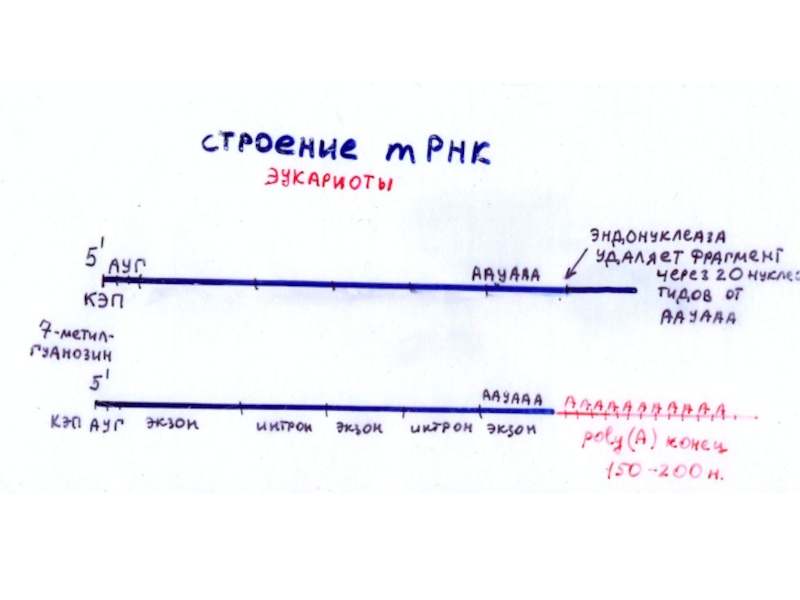 строение mРНК
эукариоты
5'
АУГ
ААУААА
эндонуклеаза
удаляет фрагмент
через 20 нуклео
тидов от
ААУААА
кэп
7-метил-
гуанозин
5'
ААУААА
АААААААААААА
кэп АУГ экзон интрон экзон интрон экзон
poly(A) конец
150-200 н.